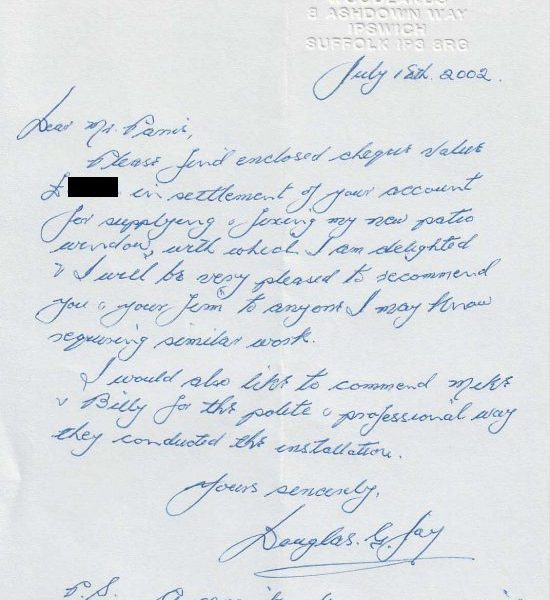 8 ASHDOWN WAY
IPSWICH
SUFFOLK IP3 8RG
July 18th. 2002.
Dear Mr.
Please find enclosed cheque value
£ in settlement of your account
for supplying & fixing my new patio
window, with which I am delighted
& I will be very pleased to recommend
you & your firm to anyone I may know
requiring similar work.
I would also like to commend Mike
& Billy for the polite & professional way
they conducted the installation.
Yours sincerely,
Douglas. G. Jay
P.S.